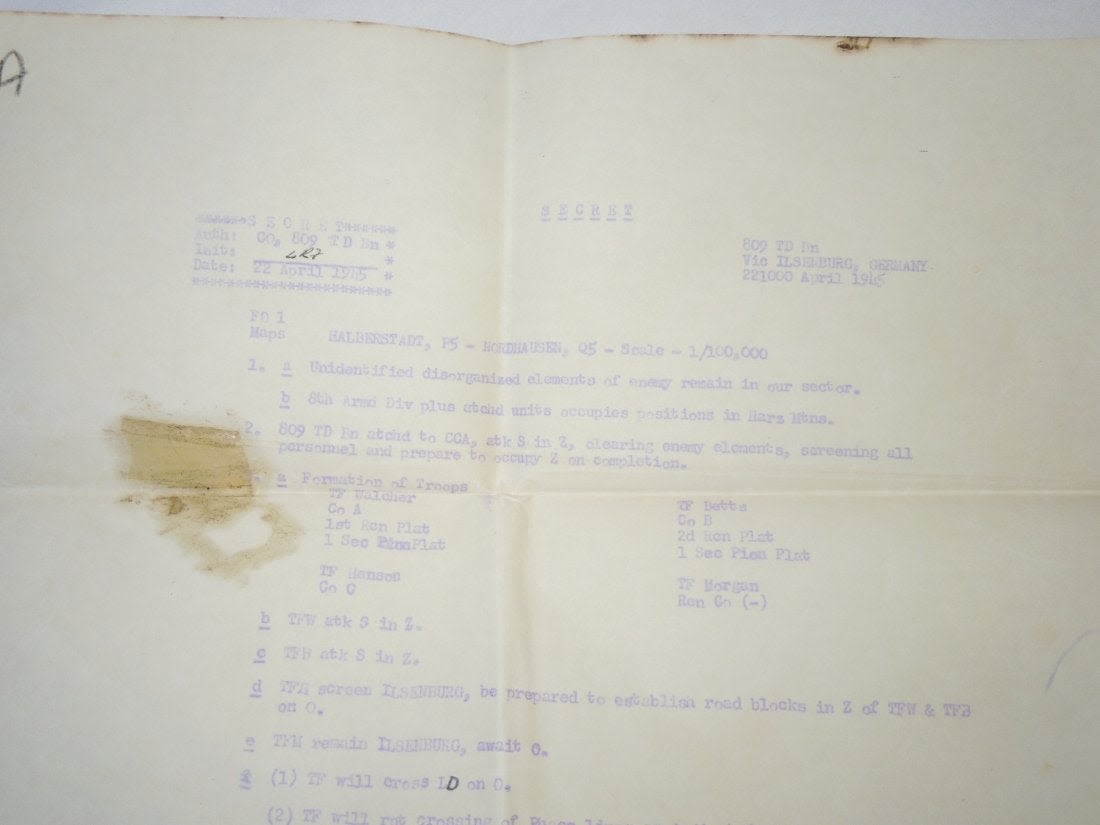 A
S E C R E T
******S E C R E T*******
Auth: CO, 809 TD Bn *
Init: *
Date: 22 April 1945 *
************************
809 TD Bn
Vic ILSENBURG, GERMANY.
221000 April 1945
FO 1
Maps HALBERSTADT, P5 - NORDHAUSEN, Q5 - Scale - 1/100,000
1. a Unidentified disorganized elements of enemy remain in our sector.
b 8th Armd Div plus atchd units occupies positions in Harz Mtns.
2. 809 TD Bn atchd to CCA, atk S in Z, clearing enemy elements, screening all
personnel and prepare to occupy Z on completion.
a Formation of Troops
TF Walcher
Co A
1st Rcn Plat
1 Sec Pion Plat
TF Betts
Co B
2d Rcn Plat
1 Sec Pion Plat
TF Hanson
Co C
TF Morgan
Rcn Co (-)
b TFW atk S in Z.
c TFB atk S in Z.
d TFH screen ILSENBURG, be prepared to establish road blocks in Z of TFW & TFB
on O.
e TFM remain ILSENBURG, await O.
f (1) TF will cross LD on O.
(2) TF will rpt crossing of Phase